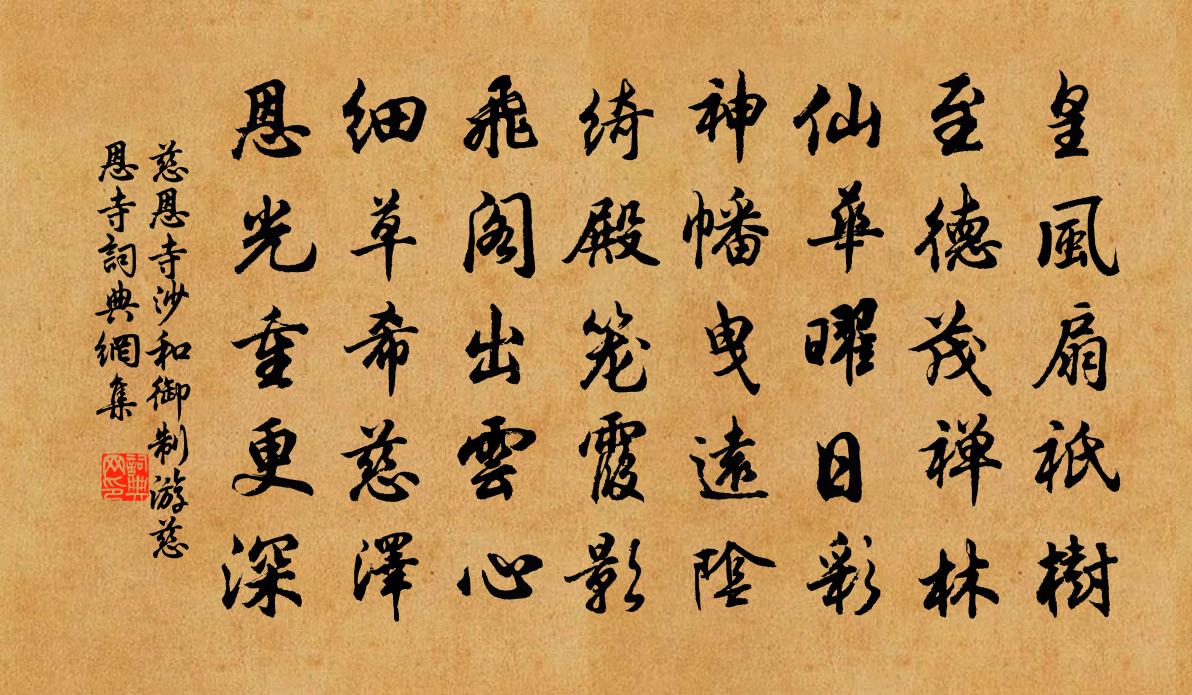 皇風扇祇樹
至德茂禅林
仙華曜日彩
神幡曳遠陰
綺殿笼霞影
飛阁出雲心
细草希慈澤
恩光重更深
慈恩寺沙和御制游慈
恩寺詞典網集
詞典
网印